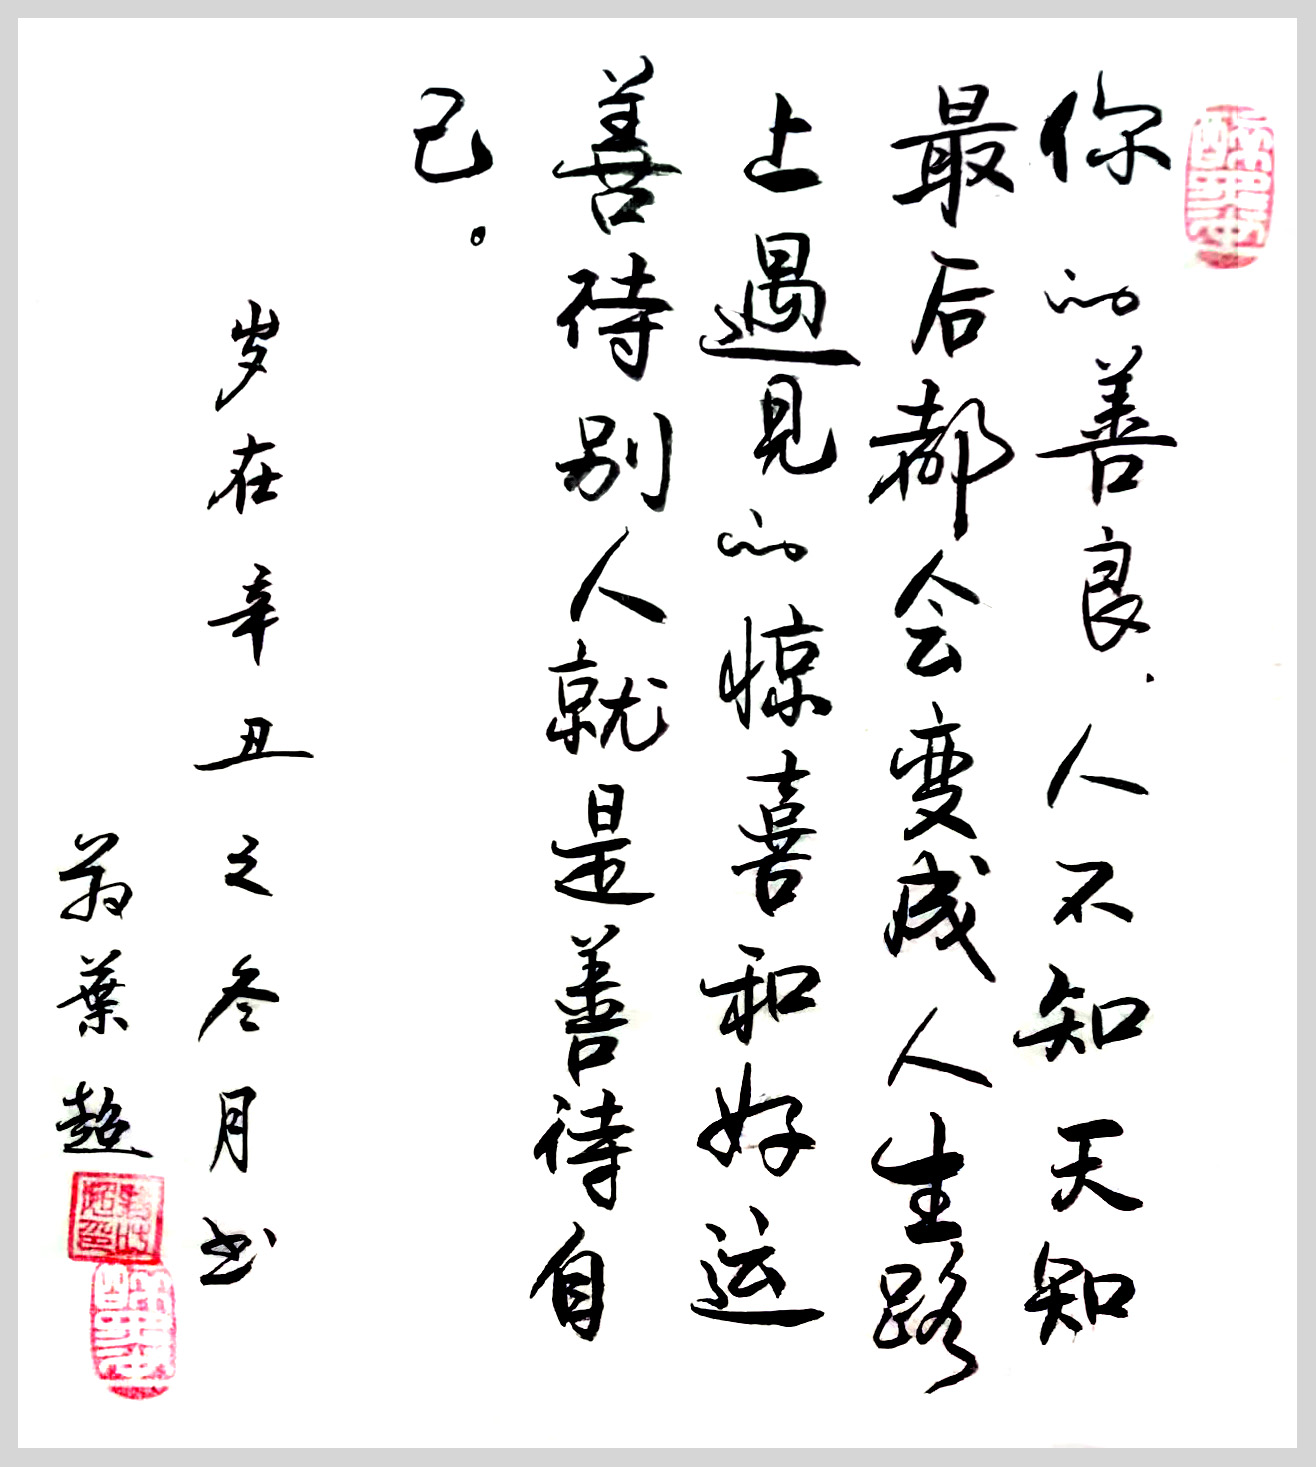 你的善良.人不知天知
最后都会变成人生路
上遇见的惊喜和好运
善待别人就是善待自
己。
岁在辛丑之冬月书
葉超